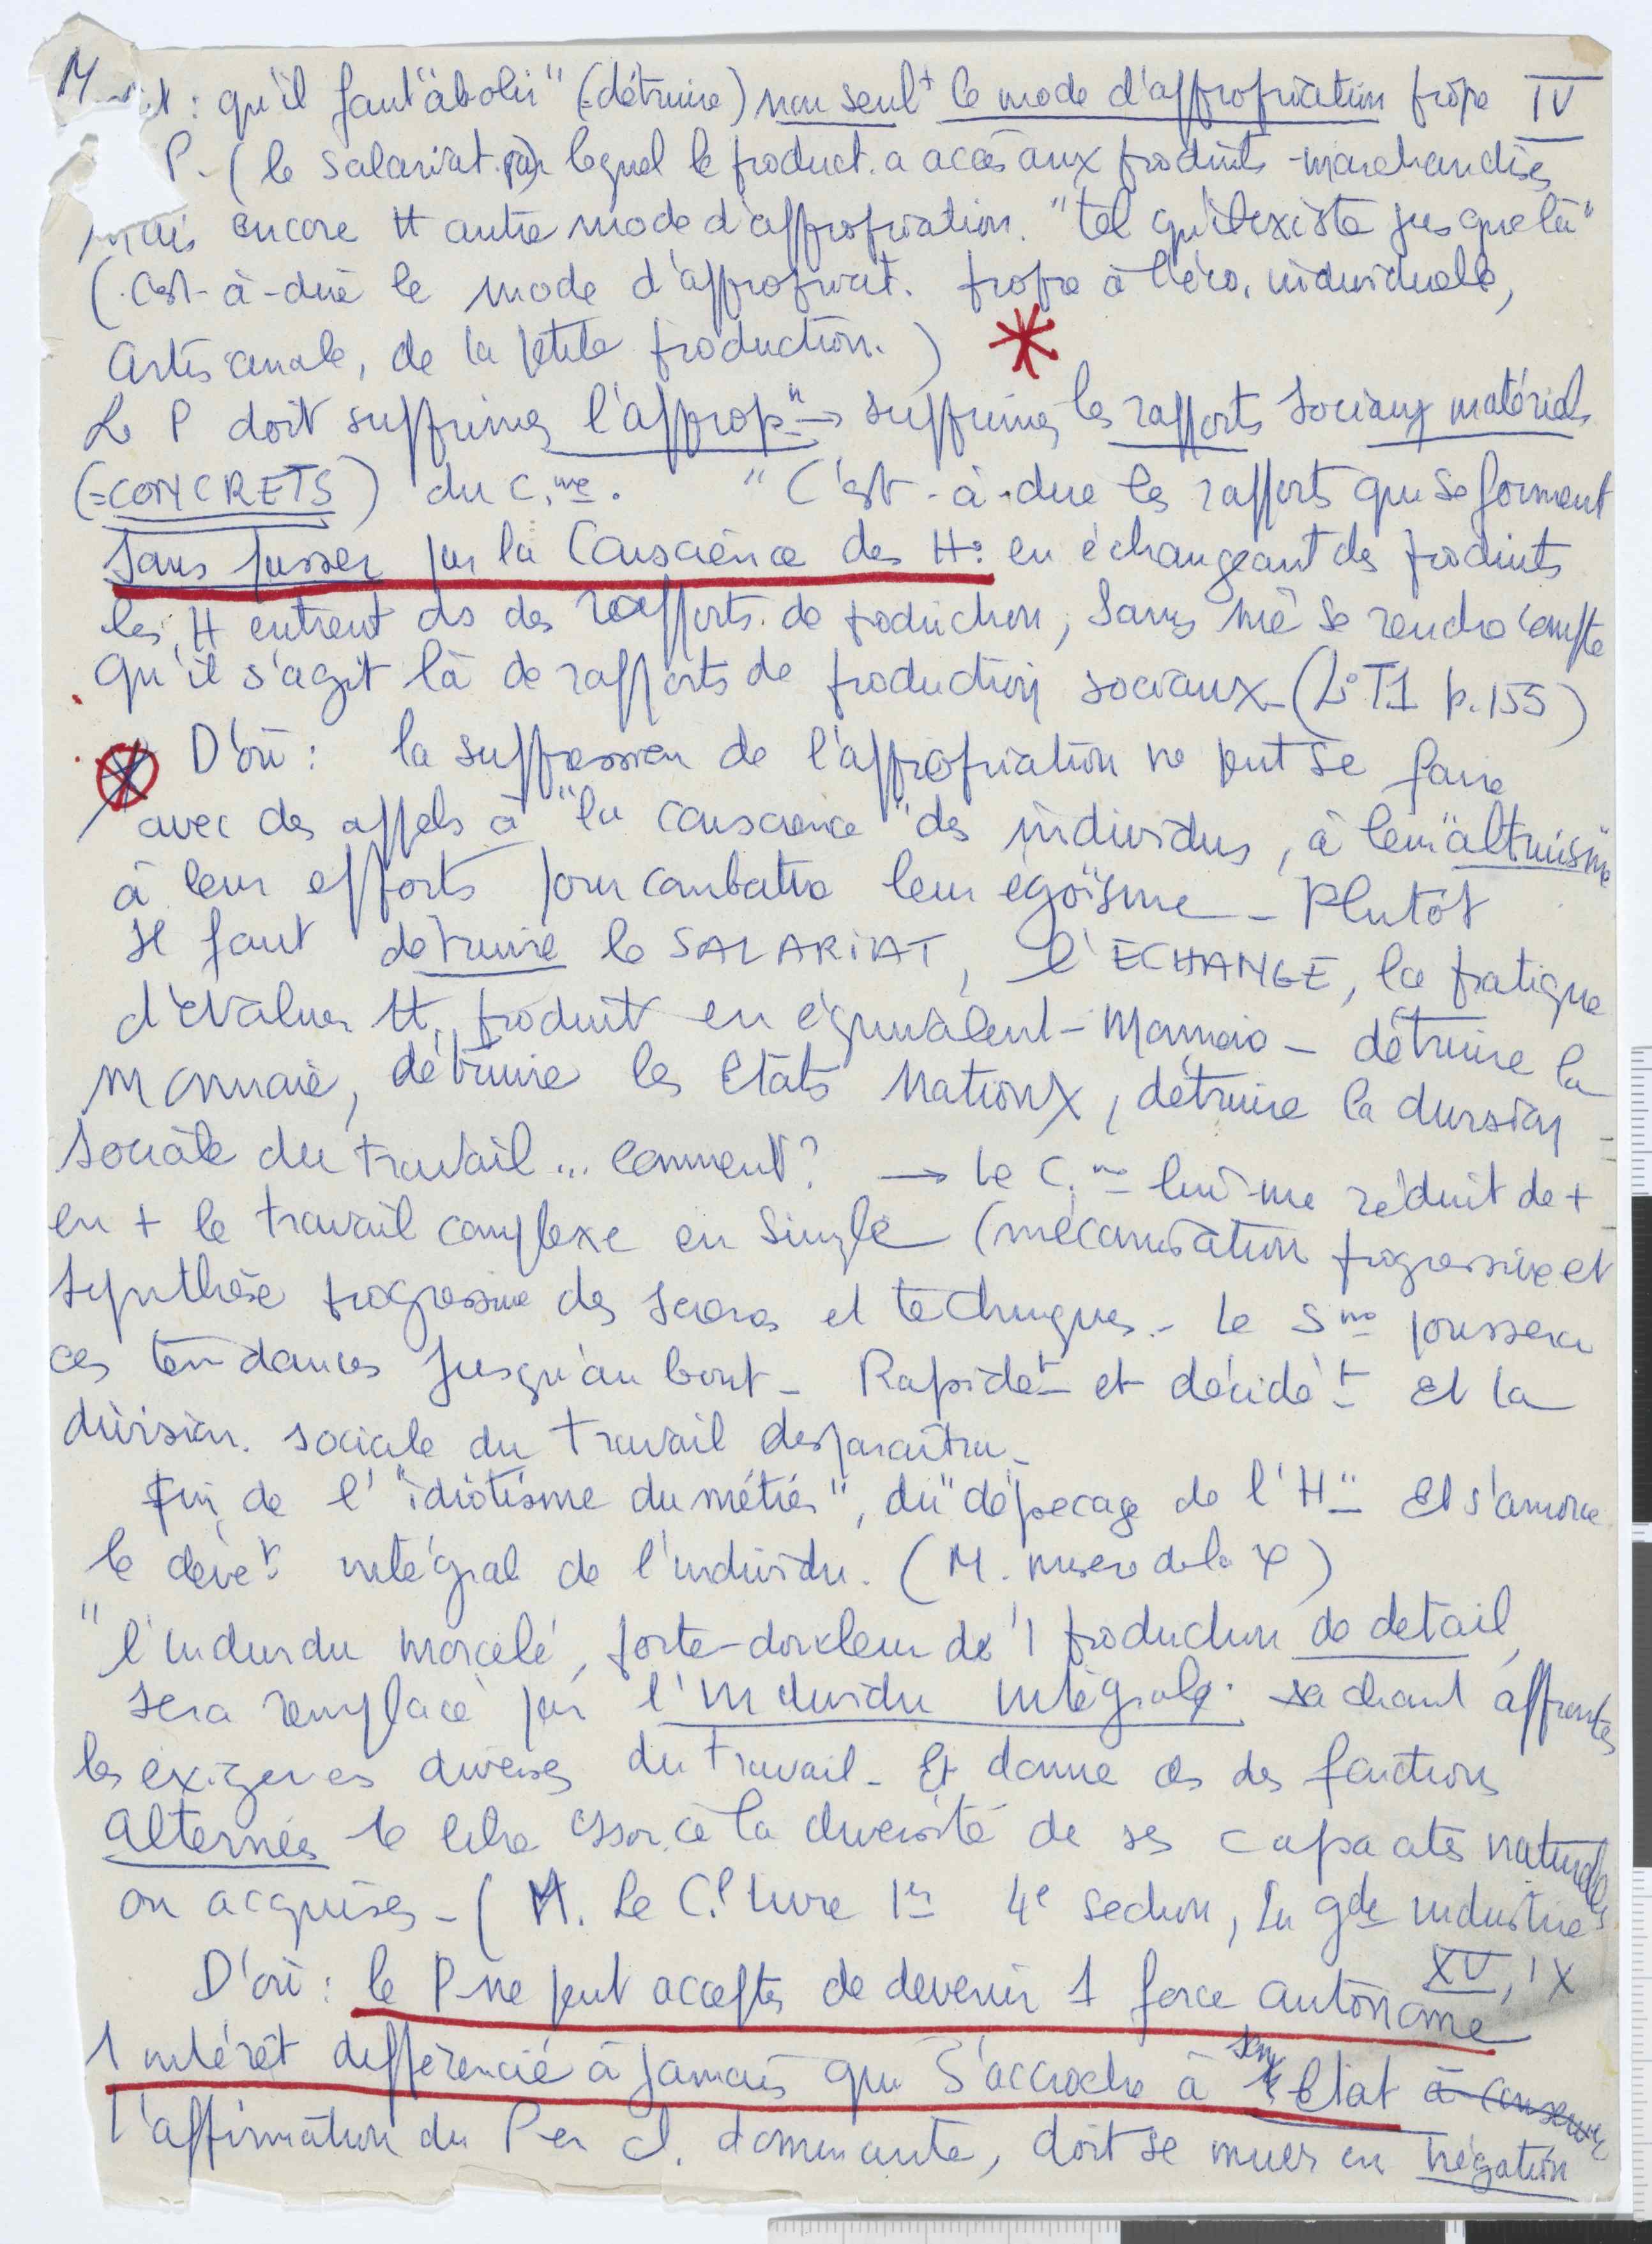 M : qu'il faut "abolir" (=détruire) non seult le mode d'appropriation propre IV
P. (le salariat par lequel le product. a accès aux produits-marchandises
mais encore tt autre mode d'appropriation. "tel qu'il existe jusque là"
(c'est-à-dire le mode d'appropriat. propre à l'éco. individuelle,
artisanale, de la petite production.) *
Le P doit supprimer l'appropn → supprimer les rapports sociaux matériels
(=CONCRETS) du C.me. "C'est-à-dire les rapports qui se forment
sans passer par la conscience des H: en échangeant des produits
les H entrent ds des rapports de production, sans mê se rendre compte
qu'il s'agit là de rapports de production sociaux-(L. T1 p. 155)
D'où : la suppression de l'appropriation ne peut se faire
avec des appels à "la conscience" des individus, à leur "altruisme"
à leur efforts pour combattre leur égoïsme - Plutôt
Il faut détruire le SALARIAT, l'ECHANGE, la pratique
d'évaluer tt produit en équivalent-Monnaie - détruire la
monnaie, détruire les Etats Nationx, détruire la division
sociale du travail... comment ? → Le C.me lui-me réduit de +
en + le travail complexe en simple (mécanisation progressive et
synthèse progressive des sciences et techniques.- Le Sme poussera
ces tendances jusqu'au bout - Rapidet et décidét et la
division sociale du travail disparaîtra-
Fin de l' "idiotisme du métier", du "dépeçage de l'H" - Et s'amorce
le devet intégral de l'individu. (M. misère de la φ)
"l'individu morcelé, porte-douleur de 1 production de détail,
sera remplacé par l'individu intégral. sachant affronter
les exigences diverses du travail - Et donne ds des fonctions
alternées le libre essor à la diversité de ses capacités naturelles
ou acquises - (M. Le C.l livre 1er 4e section, la gde industrie
XV, IX
D'où : le P ne peut accepter de devenir 1 force autonome
1 intérêt différencié à jamais qui s'accroche à son Etat à conserver
l'affirmation du P en cl. dominante, doit se muer en négation